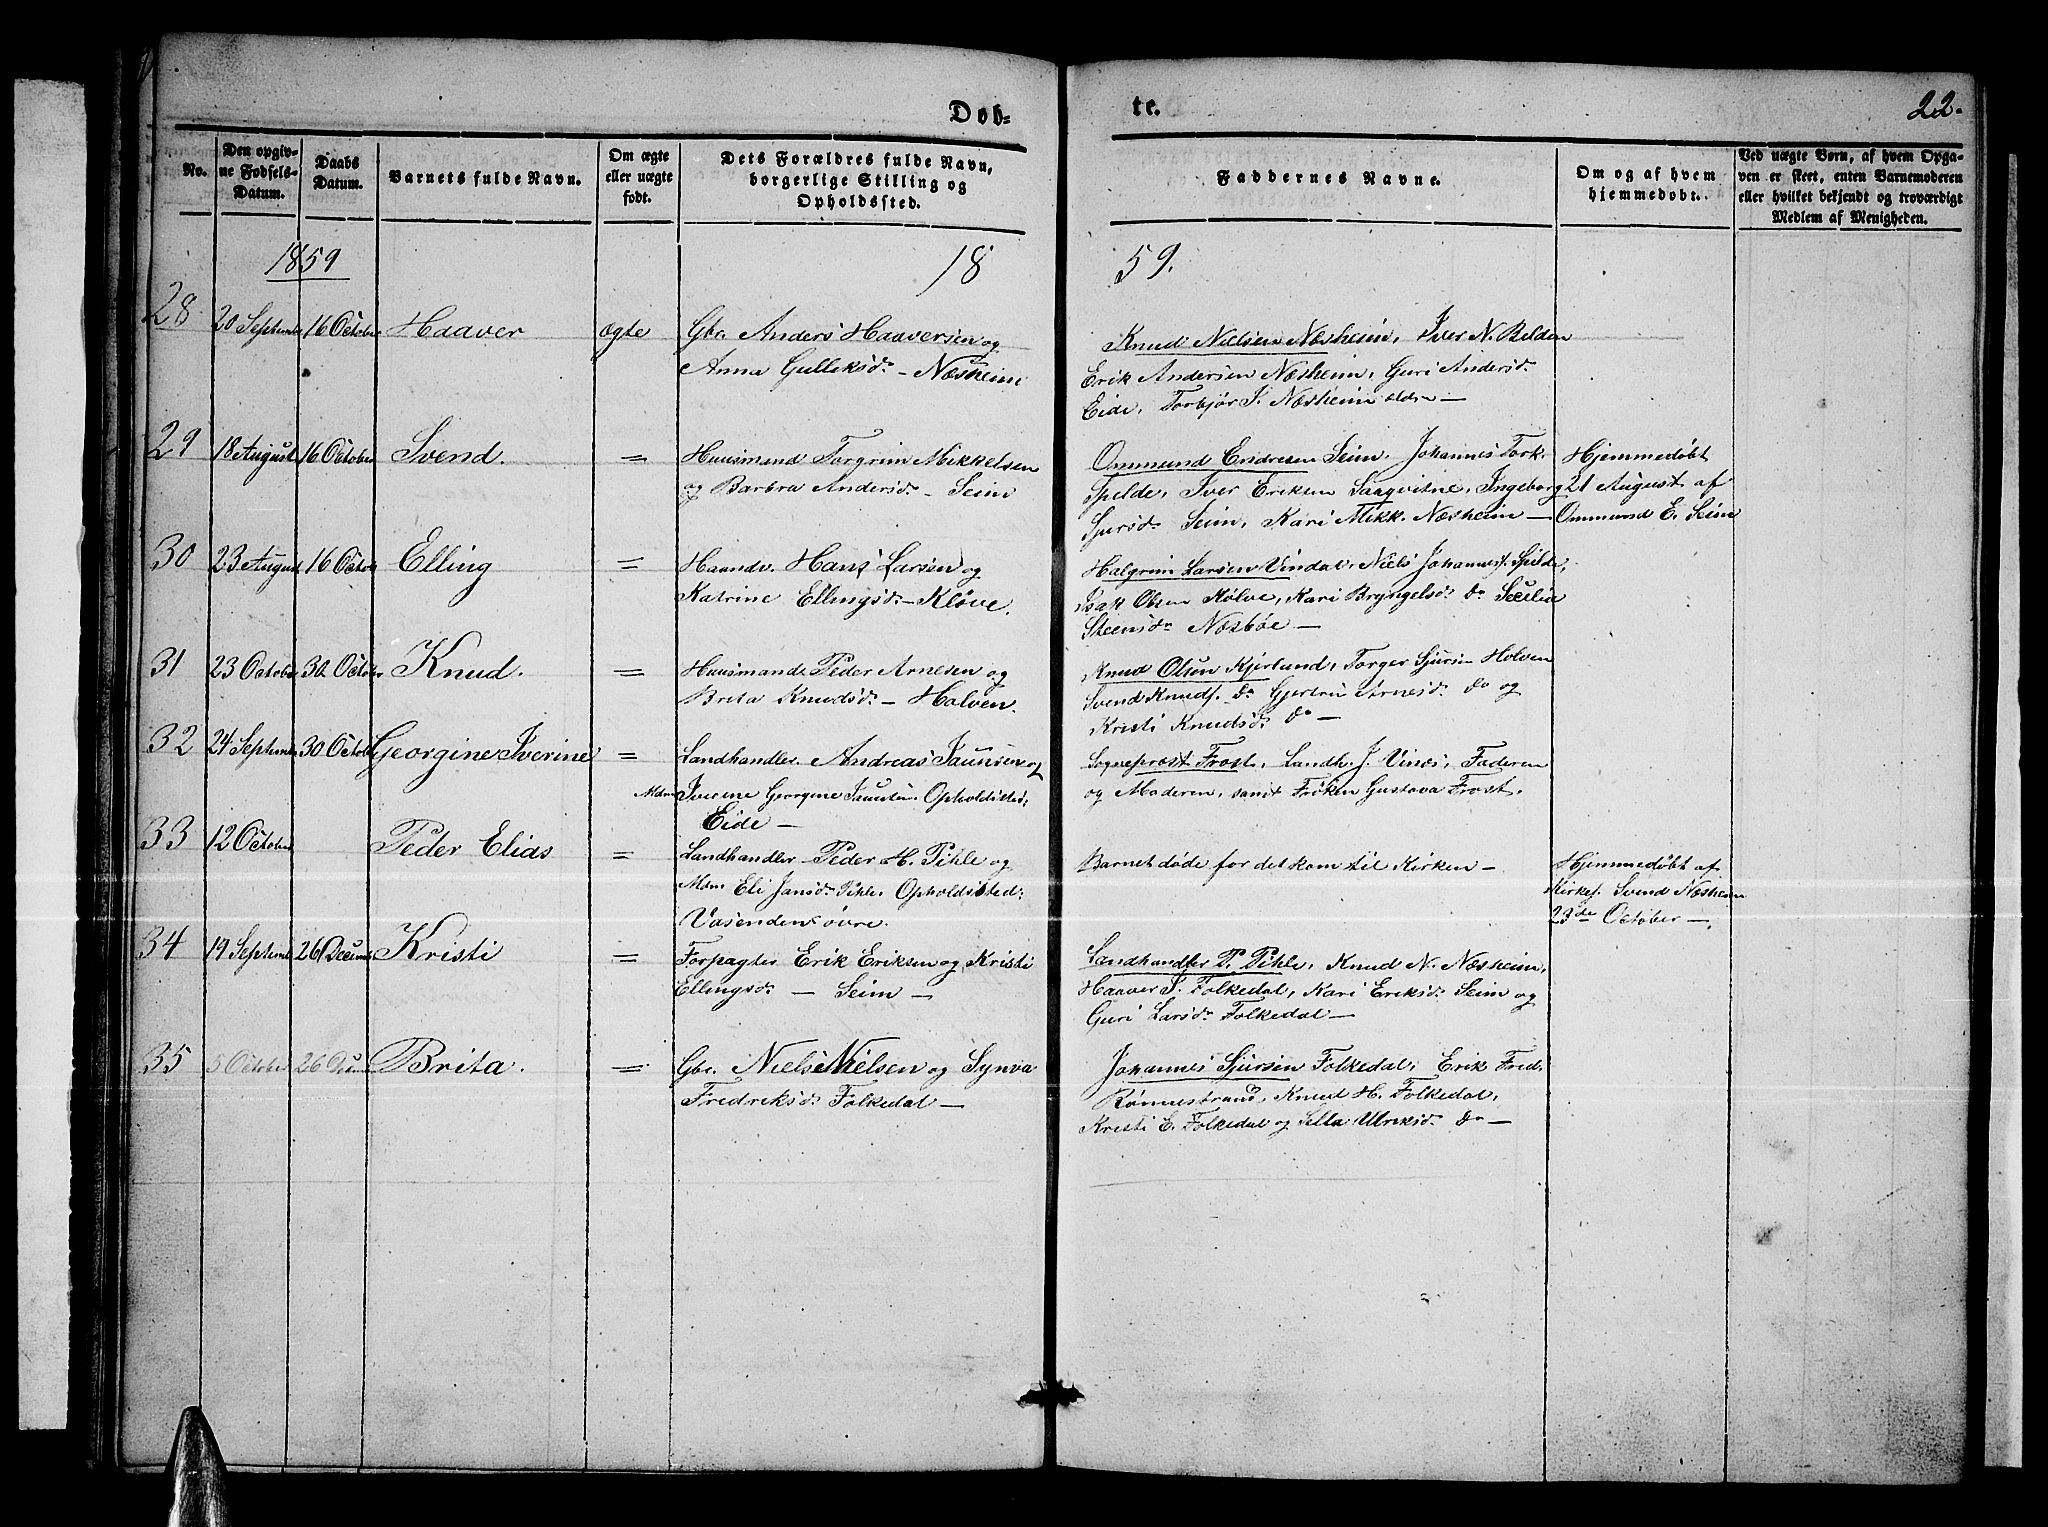 Døb-
te.
22.
No.
Den opgiv-
ne Fødsels-
Datum.
Daabs
Datum.
Barnets fulde Navn.
Om ægte
eller uægte
født.
Dets Forældres fulde Navn,
borgerlige Stilling og
Opholdssted.
Faddernes Navne.
Om og af hvem
hjemmedøbt.
Ved uægte Børn, af hvem Opga-
ven er skeet, enten Barnemoderen
eller hvilket bekjendt og troværdigt
Medlem af Menigheden.
1859
18
59.
28
20 Septembr
16 October
Haaver
ægte
Gbr. Anders Haaversen og
Anna Gulleksdr - Næsheim
Knud Nielsen Næsheim, Iver N. Bilden
Erik Andersen Næsheim, Guri Andersdr
Eide, Torbjør I. Næsheim
29
18 August
16 October
Svend.
=
Huusmand Torgrim Mikkelsen
og Barbra Andersdr - Seim
Ommund Endresen Seim, Johannes Tork.
Spilde, Iver Eriksen Saaqvitne, Ingeborg
Sjursdr Seim, Kari Mikk. Næsheim -
Hjemmedøbt
21 August af
Ommund E. Seim
30
23 August
16 Octob
Elling
=
Haandv. Hans Larsen og
Katrine Ellingsdr - Kløve.
Halgrim Larsen Vindal, Niels Johannesf. Spilde,
Isak Olsen Kølve, Kari Bryngelsdr do Secilia
Steensdr Næsbøe -
31
23 October
30 October
Knud.
=
Huusmand Peder Arnesen og
Brita Knudsdr - Holven.
Knud Olsen Kjerland, Torger Sjursen Holven
Svend Knuds. do Gjertru Arnesdr do og
Kristi Knudsdr do -
32
24 Septembr
30 Octob
Georgine Iverine
=
Landhandler Andreas Jaunsen og
Mdm Iverene Georgene Jaunsen. Opholdssted,
Eide -
Sogneprest Frost, Landh. J. Vinæs, Faderen
og Moderen, samt Frøken Gustava Frost.
33
12 October
Peder Elias
=
Landhandler Peder H. Pihle og
Mdm Eli Jansdr Pihle, Opholdssted:
Vasenden øvre.
Barnet døde før det kom til Kirken -
Hjemmedøbt af
Kirkes. Svend Næsheim
23de October -
34
19 Septembr
26 Decemb
Kristi
=
Forpagter Erik Eriksen og Kristi
Ellingsdr - Seim -
Landhandler P. Pihle, Knud N. Næsheim,
Haaver S. Folkedal, Kari Eriksdr Seim og
Guri Larsdr Folkedal -
35
5 October
26 Decem
Brita.
=
Gbr. Niels Nielsen og Synva
Fredriksdr Folkedal -
Johannes Sjursen Folkedal, Erik Fred.
Rønnestrand, Knud H. Folkedal,
Kristi E. Folkedal og Sella Ulriksdr do -